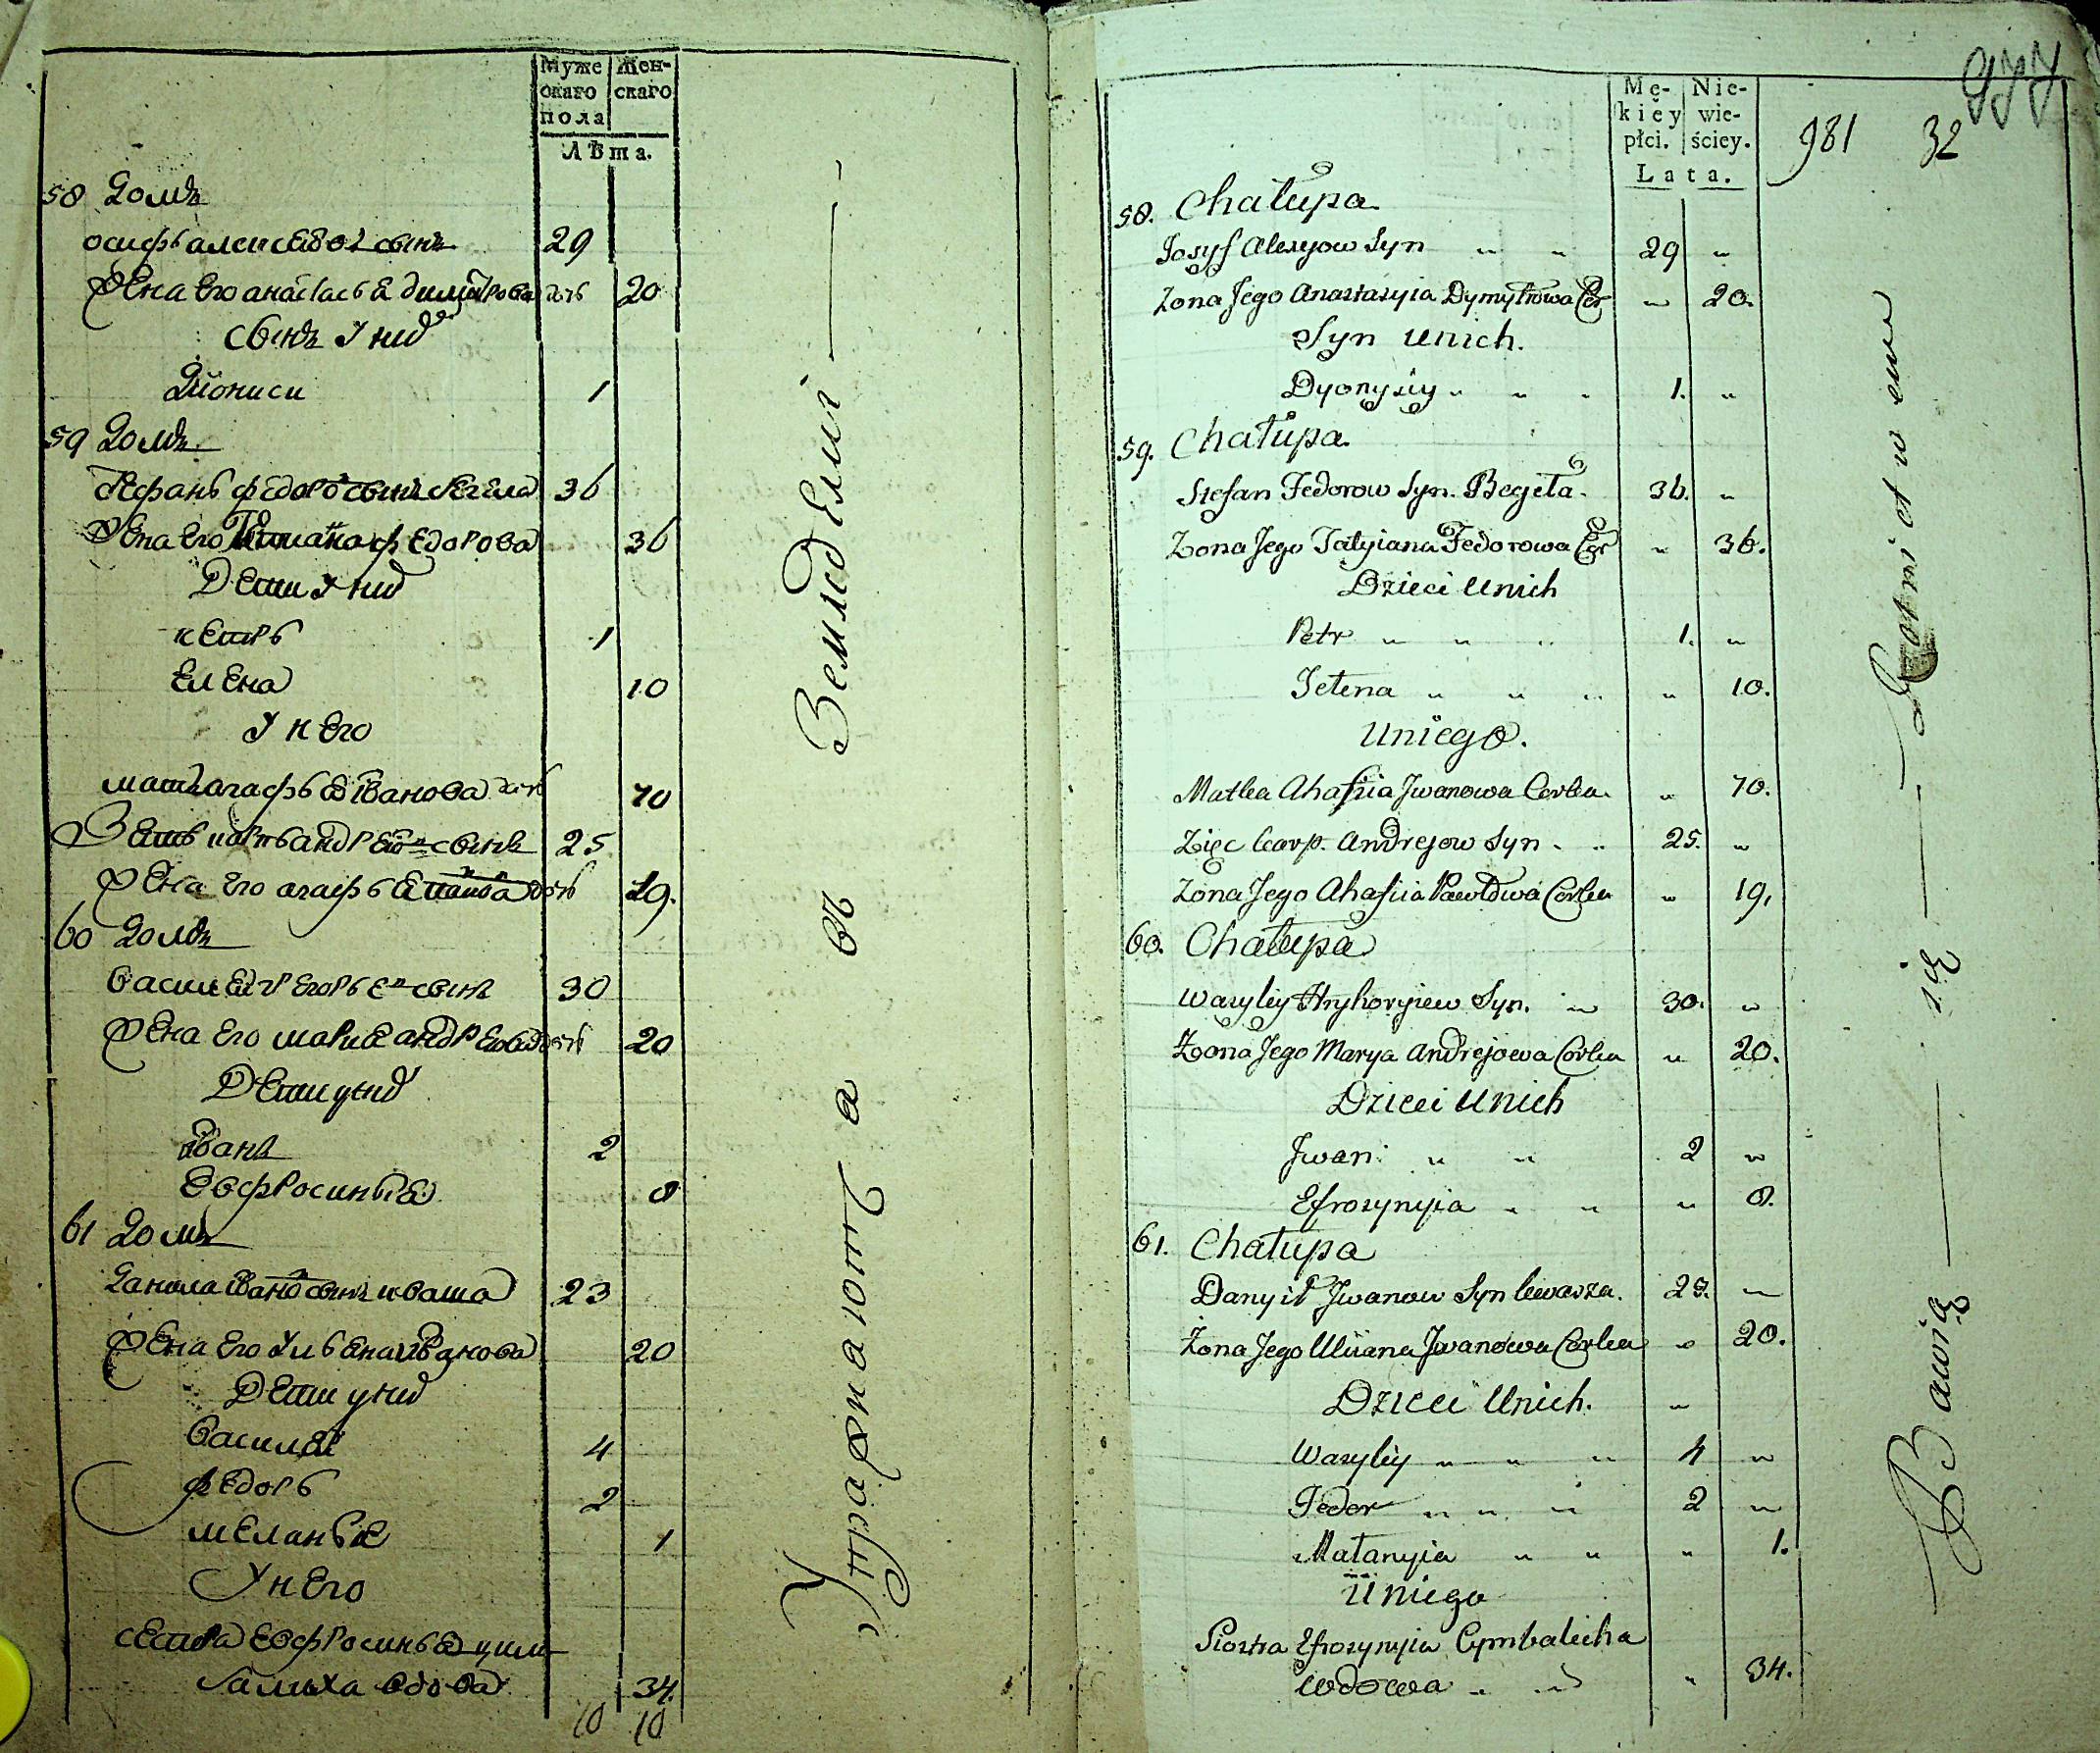 Муже
скаго
пола
Жен-
скаго
Лѣта.
58 Домъ
осифъ алексѣевъ сынъ 29
Жена его анастасьѧ димитрова дочь 20
Сынъ У них
Диониси 1
59 Домъ
Стефанъ федоровъ сынъ 36
Жена его Татиана федорова 36
Дети У них
петръ 1
Елена 10
У него
мать агафьѧ Іванова дочь 70
Зеть карпъ андреевъ сынъ 25
Жена его агафьѧ павлова дочь 19.
60 Домъ
василей Грегорьевъ сынъ 30
Жена его мариѧ андреева дочь 20
Дети у них
Иванъ 2
Еѵфросиньѧ 8
61 Домъ
Данила Івановъ сынъ кваша 23
Жена его Ульѧна Иванова 20
Дети у них
Василей 4
федоръ 2
меланьѧ 1
У него
сестра Еѵфросиньѧ цим-
балиха вдова 34.
10 10
Упражнаютца въ Земледелиі
Mę-
kiey
płci.
Nie-
wie-
ściey.
Lata.
981 32
977
58. Chałupa
Josyf Alexyow Syn " " 29 "
Zona Jego Anastasyia Dymytrowa Cor " 20.
Syn u nich.
Dyonyziy " " " 1. "
59. Chałupa
Stefan Fedorow Syn. 36. "
Zona Jego Tatyiana Fedorowa Cor " 36.
Dzieci u nich
Petr " " " 1. "
Jełena " " " " 10.
U niego.
Matka Ahafiia Jwanowa Corka. " 70.
Zięc Karp. Andrejow Syn " " 25. "
Zona Jego Ahafiia Pawłowa Corka " 19.
60. Chałupa
Wasyliy Hryhoryiew Syn. " 30. "
Żona Jego Marya Andrejowa Corka " 20.
Dzieci u nich
Jwan " " 2 "
Efrozynyia " " " 8.
61. Chałupa
Danyił Jwanow Syn kwasza. 23. "
Żona Jego Uliiana Jwanowa Corka " 20.
Dzieci u nich. "
Wasyliy " " " 4 "
Fedor " " " 2 "
Małanyia " " " 1.
U niego
Siostra Efrozynyia Cymbalicha
wdowa " " " 34.
Bawią się Rolnictwem